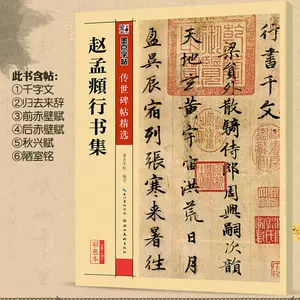 此书含帖:
①千字文
②归去来辞
③前赤壁赋
④后赤壁赋
⑤秋兴赋
⑥陋室铭
墨点字帖
赵孟頫行书集
传世碑帖精选
彩色本
行書千文
梁員外散騎侍郎周興嗣次韻
天地玄黃宇宙洪荒日月
盈昃辰宿列張寒来暑往